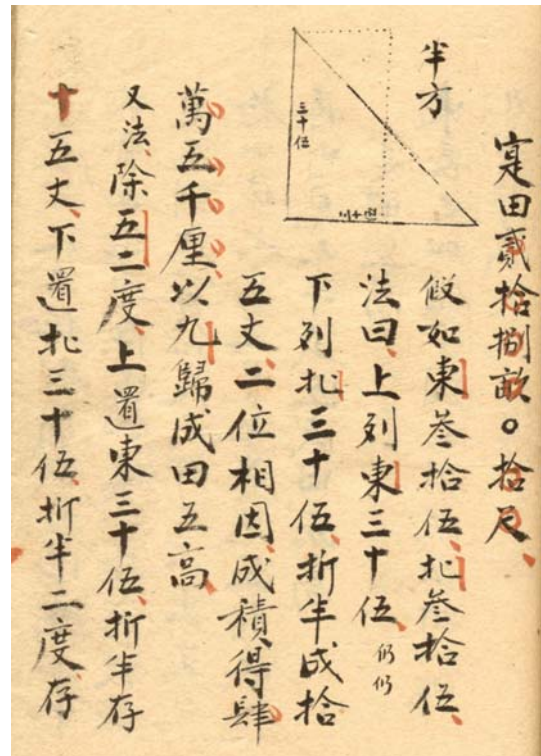 寔田貳拾捌畝〇拾尺
半方
三十伍
假如東叁拾伍北叁拾伍
法曰上列東三十伍仍仍
下列北三十伍折半成拾
五丈二位相因成積得肆
萬五千厘以九歸成田五高
又法除五二度上置東三十伍折半存
十五丈下置北三十伍折半二度存